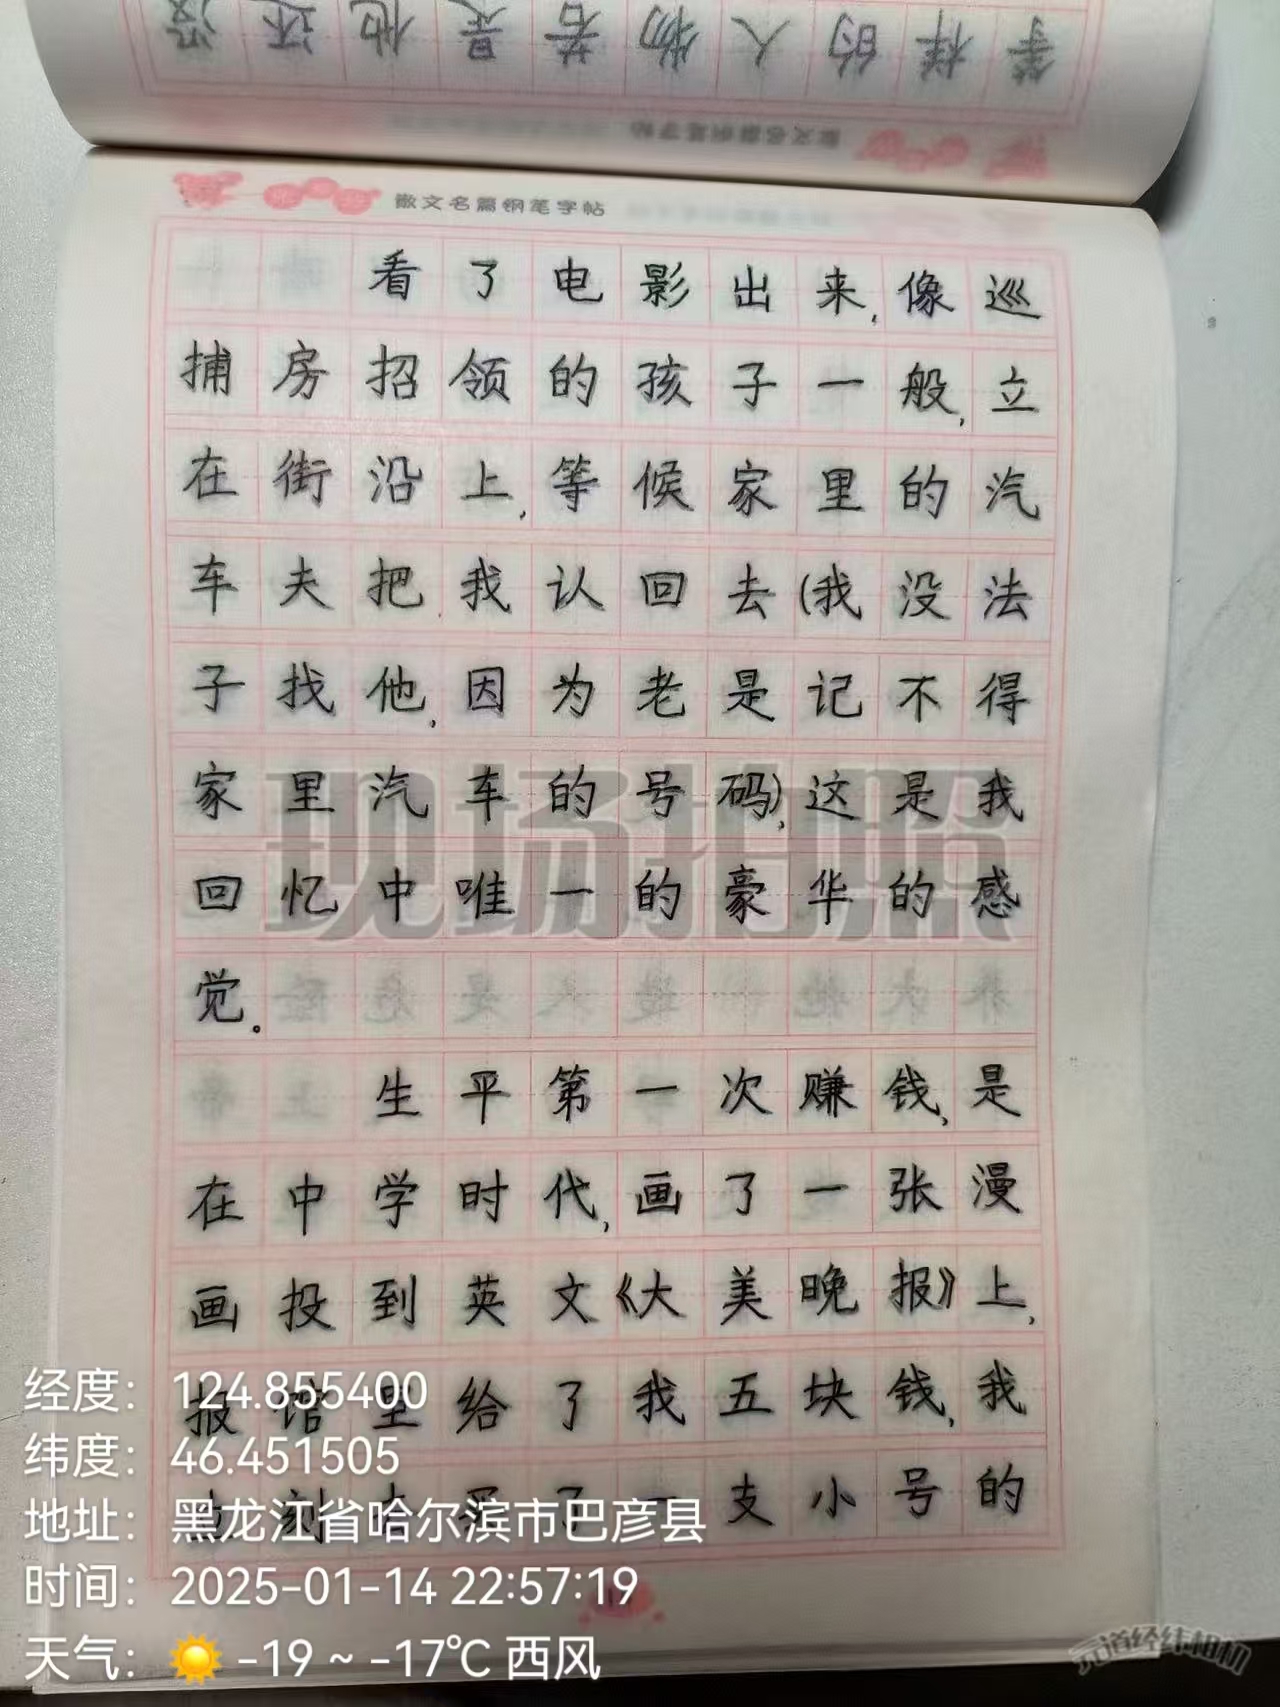 等样的人物若是他还没
散文名篇钢笔字帖
看了电影出来,像巡
捕房招领的孩子一般,立
在街沿上,等候家里的汽
车夫把我认回去(我没法
子找他,因为老是记不得
家里汽车的号码),这是我
回忆中唯一的豪华的感
觉。
生平第一次赚钱,是
在中学时代,画了一张漫
画投到英文《大美晚报》上,
报馆里给了我五块钱,我
立刻去买了一支小号的
现场拍照
经度：124.855400
纬度：46.451505
地址：黑龙江省哈尔滨市巴彦县
时间：2025-01-14 22:57:19
天气：-19 ~ -17℃ 西风
元道经纬相机